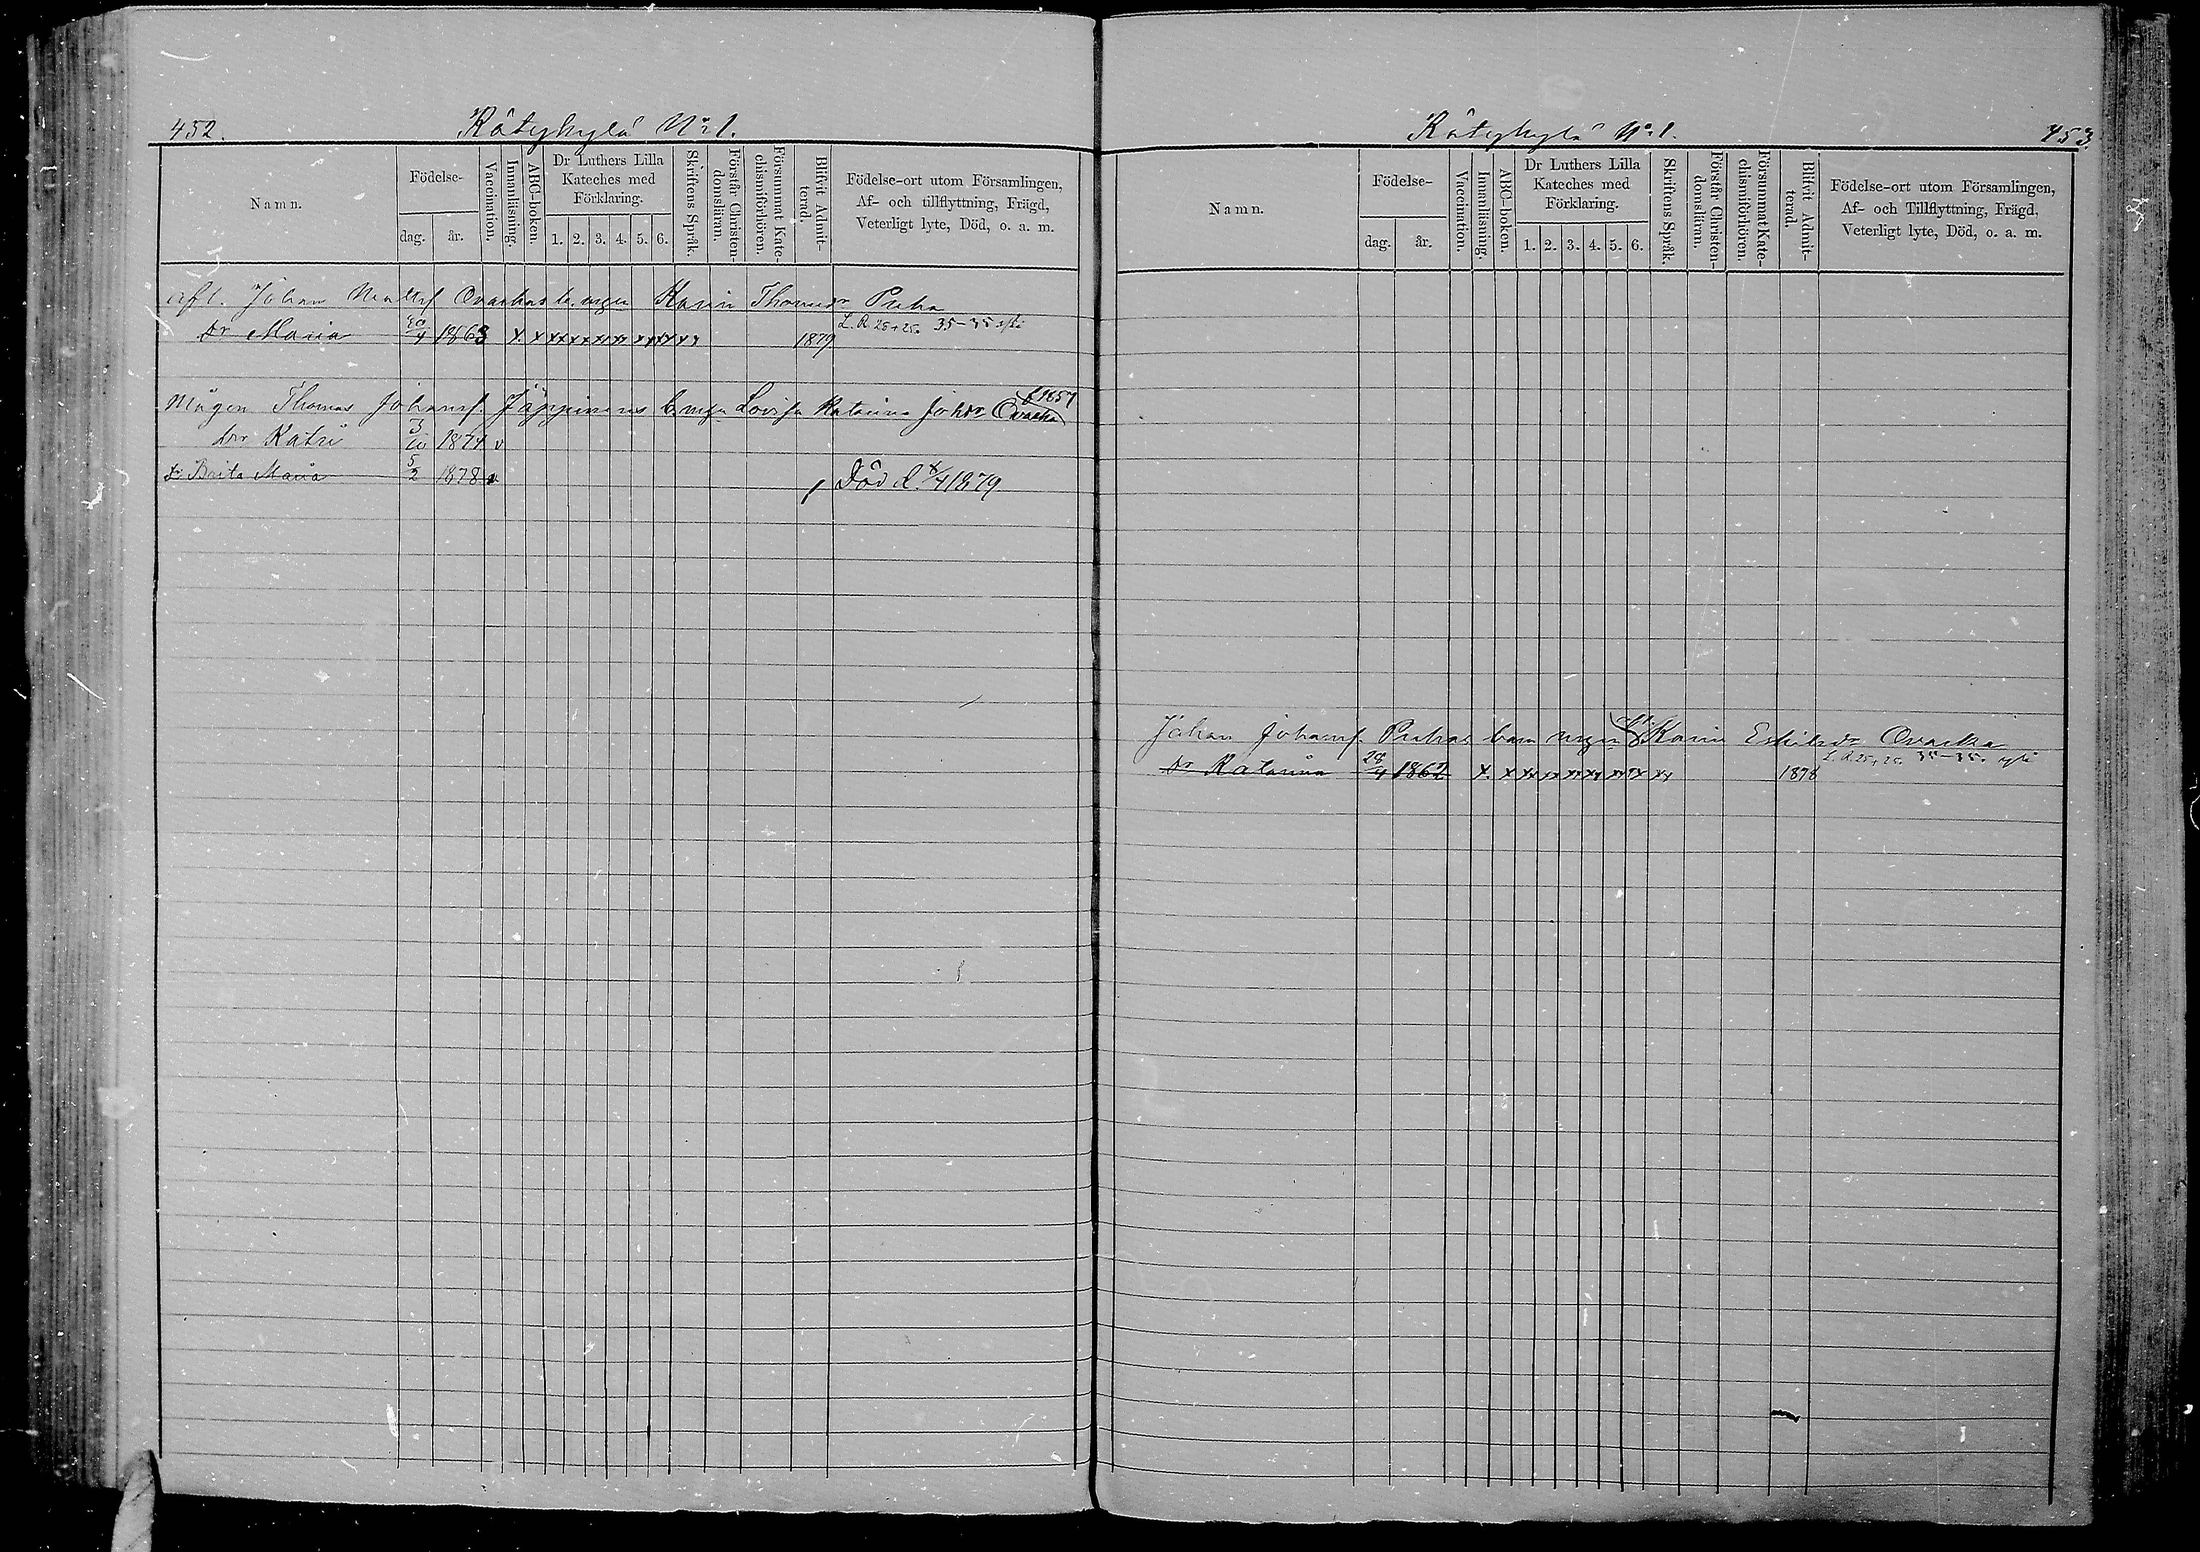 452. Rätykylä No 1.
Namn.
Födelse-
dag. år.
Vaccination.
Innanläsning.
ABC-boken.
Dr Luthers Lilla
Kateches med
Förklaring.
1. 2. 3. 4. 5. 6.
Skriftens Språk.
Förstår Christen-
domsläran.
Försummat Kate-
chismiförhören.
Blifvit Admit-
terad.
Födelse-ort utom Församlingen,
Af- och tillflyttning, Frägd,
Veterligt lyte, Död, o. a. m.
afl. Johan Karin Thomasdr Puha
Dr Maria 20/4 1863 x x xx xx xx xx xx xx xx 1879 35-35
Mågen Thomas Johansf. Jäppinens Lovisa Katarina Johdr Ovaska f 1857
dr Katri 3/10 1874 v
Dr Brita Maria 5/2 1878 v Död d. 4 1879
Rätykylä No 1. 453.
Namn.
Födelse-
dag. år.
Vaccination.
Innanläsning.
ABC-boken.
Dr Luthers Lilla
Kateches med
Förklaring.
1. 2. 3. 4. 5. 6.
Skriftens Språk.
Förstår Christen-
domsläran.
Försummat Kate-
chismiförhören.
Blifvit Admit-
terad.
Födelse-ort utom Församlingen,
Af- och Tillflyttning, Frägd,
Veterligt lyte, Död, o. a. m.
Johan Johansf. Puhas barn Karin Eskilsdr Ovaska
Dr Katarina 28/4 1862 x x xx xx xx xx xx xx xx 1878 35-35.